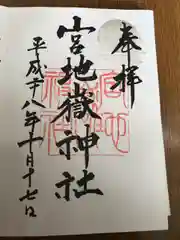 奉拝
宮地嶽神社
平成十八年十月十七日